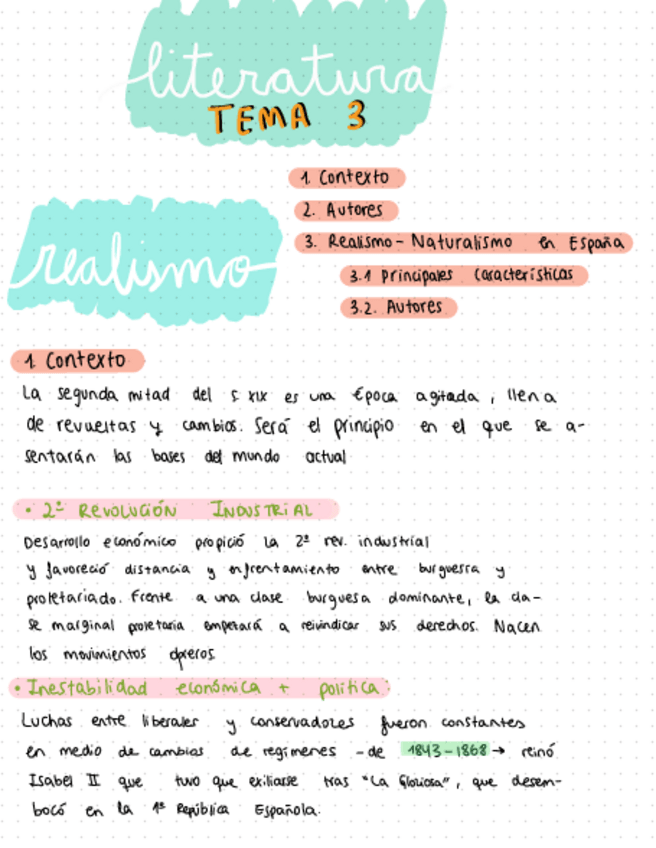 literatura
TEMA 3
realismo
1. Contexto
2. Autores
3. Realismo - Naturalismo en España
3.1 Principales características
3.2. Autores
1. Contexto
La segunda mitad del s. XIX es una época agitada, llena
de revueltas y cambios. Será el principio en el que se a-
sentarán las bases del mundo actual
• 2ª REVOLUCIÓN INDUSTRIAL
Desarrollo económico propició la 2ª rev. industrial
y favoreció distancia y enfrentamiento entre burguesía y
proletariado. Frente a una clase burguesa dominante, la cla-
se marginal proletaria empezará a reivindicar sus derechos. Nacen
los movimientos obreros
• Inestabilidad económica + política:
Luchas entre liberales y conservadores fueron constantes
en medio de cambios de regímenes - de 1843-1868 → reinó
Isabel II que tuvo que exiliarse tras "La Gloriosa", que desem-
bocó en la 1ª República Española.